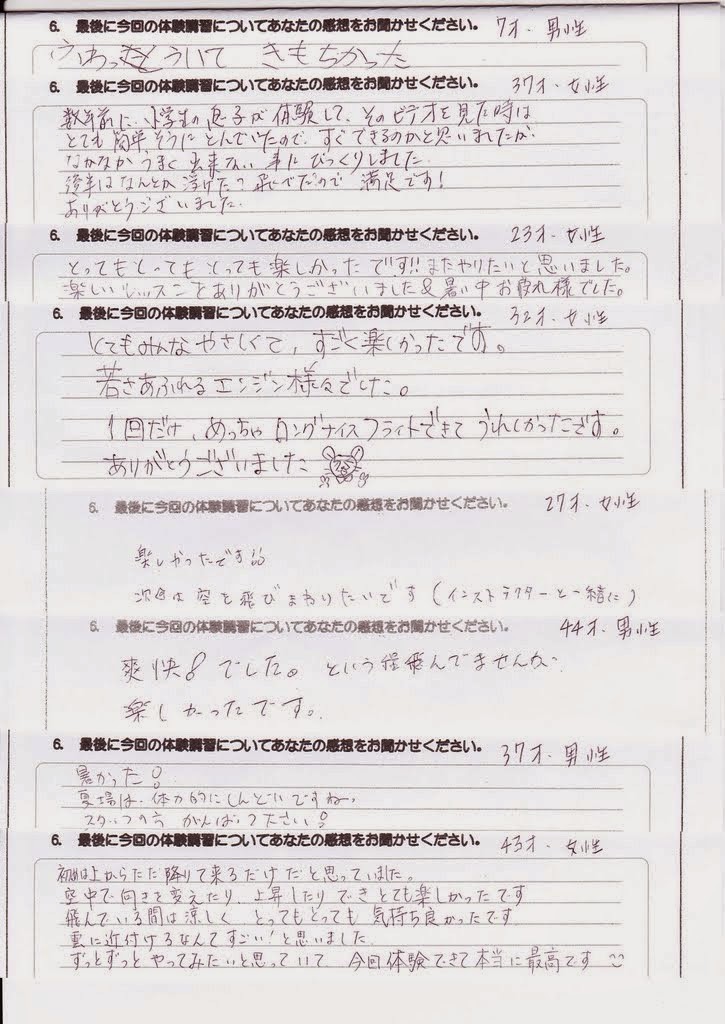 6. 最後に今回の体験講習についてあなたの感想をお聞かせください。 7才・男性
ふわっとういて きもちかった
6. 最後に今回の体験講習についてあなたの感想をお聞かせください。 37才・女性
数年前に、小学生の息子が体験して、そのビデオを見た時は
とても簡単そうにとんでいたので、すぐできるのかと思いましたが、
なかなかうまく出来ない事にびっくりしました。
後半はなんとか浮けた?飛べたので 満足です!
ありがとうございました。
6. 最後に今回の体験講習についてあなたの感想をお聞かせください。 23才・女性
とってもとってもとっても楽しかったです!!またやりたいと思いました。
楽しいレッスンをありがとうございました&暑い中お疲れ様でした。
6. 最後に今回の体験講習についてあなたの感想をお聞かせください。 32才・女性
とてもみんなやさしくて、すごく楽しかったです。
若さあふれるエンジン様々でした。
1回だけ、めっちゃロングナイスフライトできてうれしかったです。
ありがとうございました
6. 最後に今回の体験講習についてあなたの感想をお聞かせください。 27才・女性
楽しかったです!!
次回は空を飛びまわりたいです(インストラクターと一緒に)
6. 最後に今回の体験講習についてあなたの感想をお聞かせください。 44才・男性
爽快!でした。という程飛んでませんが、
楽しかったです。
6. 最後に今回の体験講習についてあなたの感想をお聞かせください。 37才・男性
暑かった!
夏場は、体力的にしんどいですね。
スタッフの方 がんばって下さい!
6. 最後に今回の体験講習についてあなたの感想をお聞かせください。 43才・女性
初めは上からただ降りて来るだけだと思っていました。
空中で向きを変えたり、上昇したりできとても楽しかったです
飛んでいる間は涼しく とってもとっても 気持ち良かったです
雲に近付けるなんてすごい!と思いました
ずっとずっと やってみたいと思っていて 今回体験できて本当に最高です